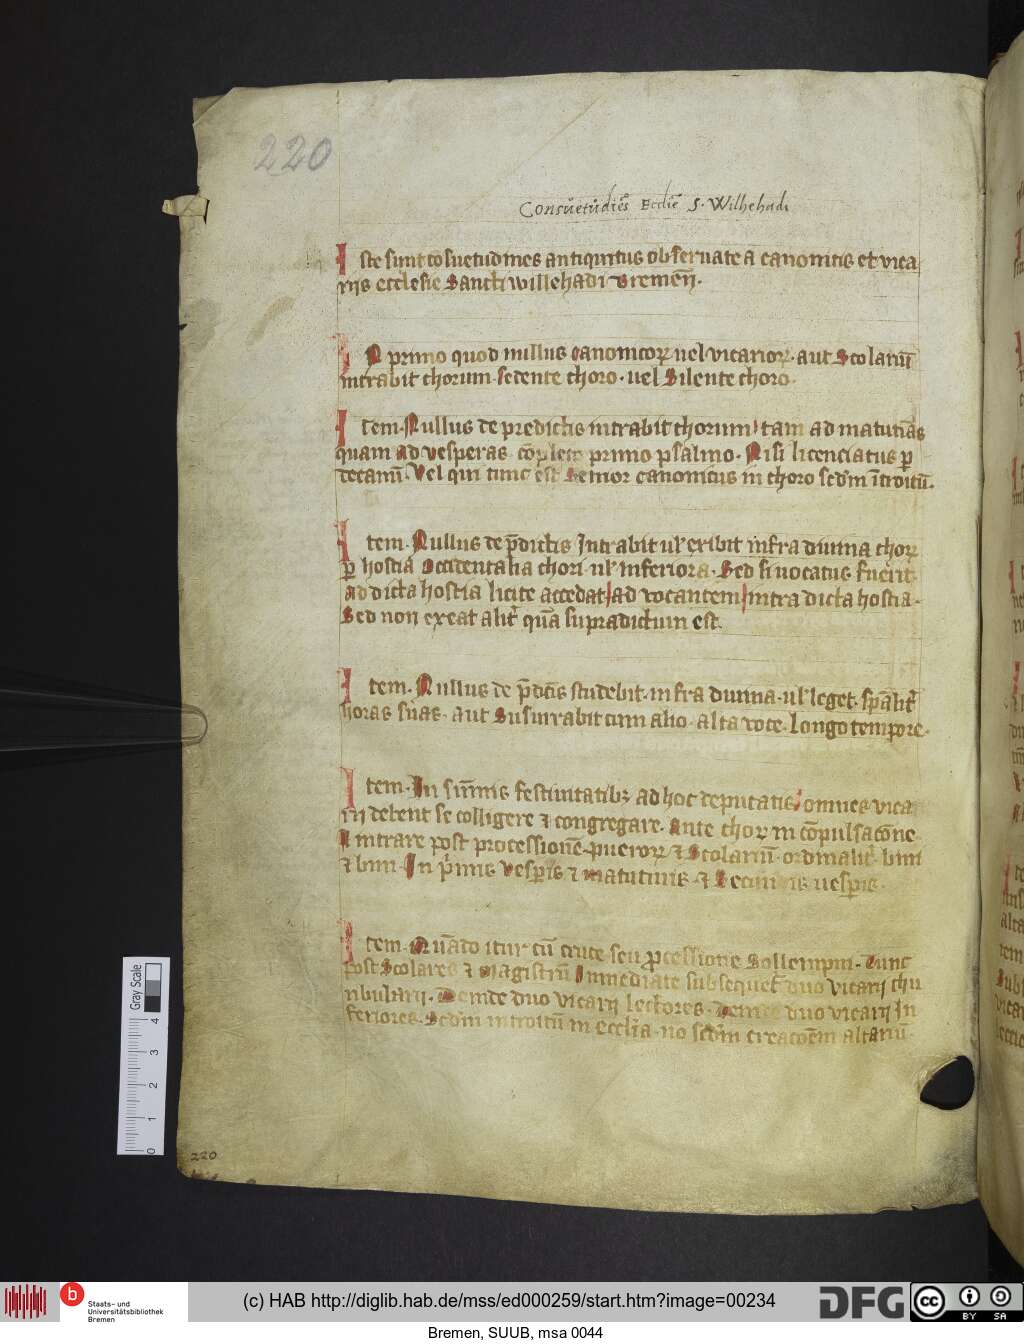 220
Consuetudīes Ecclīe S. Wilhehadi
Iste sunt cōsuetudines antiquitus obseruate a canonicis et vica
rijs ecclesie Sancti willehadi Bremeñ.
In primo quod nullus canonicoꝝ uel vicarioꝝ. aut Scolariū
intrabit chorum. sedente choro. uel Silente choro.
Item. Nullus de predictis intrabit chorum tam ad matutīas
quam ad vesperas cōpleto primo psalmo. Nisi licenciatus ꝑ
decanū. Vel qui tunc est Senior canonicus in choro scdm̄ ītroitū.
Item. Nullus de p̄dictis Intrabit ul̓ exibit infra diuina choꝝ
ꝑ hostia Occidentalia chori. ul̓ inferiora. Sed si uocatus fuerit
ad dicta hostia licite accedat ad vocantem intra dicta hostia.
Sed non exeat alit̓ quā supradictum est.
Item. Nullus de p̄dc̄is studebit. infra diuina. ul̓ leget. sp̄alit̓
horas suas. aut Susurrabit cum alio. alta voce. Longo tempore.
Item. In sūmis festiuitatibꝫ ad hoc deputatis omnes vica
rij debent se colligere ⁊ congregare. Ante choꝝ in cōpulsac̄one
⁊ intrare post processionē pueroꝝ ⁊ Scolariū. ordinalit̓. bini
⁊ bini. In p̓mis Vesp̄is ⁊ matutinis. ⁊ Secundis uesp̄is.
Item. Quādo itur cū cruce seu ꝓcessione Sollempni. Tunc
post Scolares ⁊ magistrū Immediate subsequēt duo vicarij thu
ribularij. Deinde duo vicarij lectores. Deinde duo vicarij In
feriores. Scdm̄ introitū in Eccl̄ia. nō scdm̄ creac̄oēm altariū.
220
Gray Scale
0 1 2 3 4
b
Staats- und
Universitätsbibliothek
Bremen
(c) HAB http://diglib.hab.de/mss/ed000259/start.htm?image=00234
DFG
cc BY SA
Bremen, SUUB, msa 0044